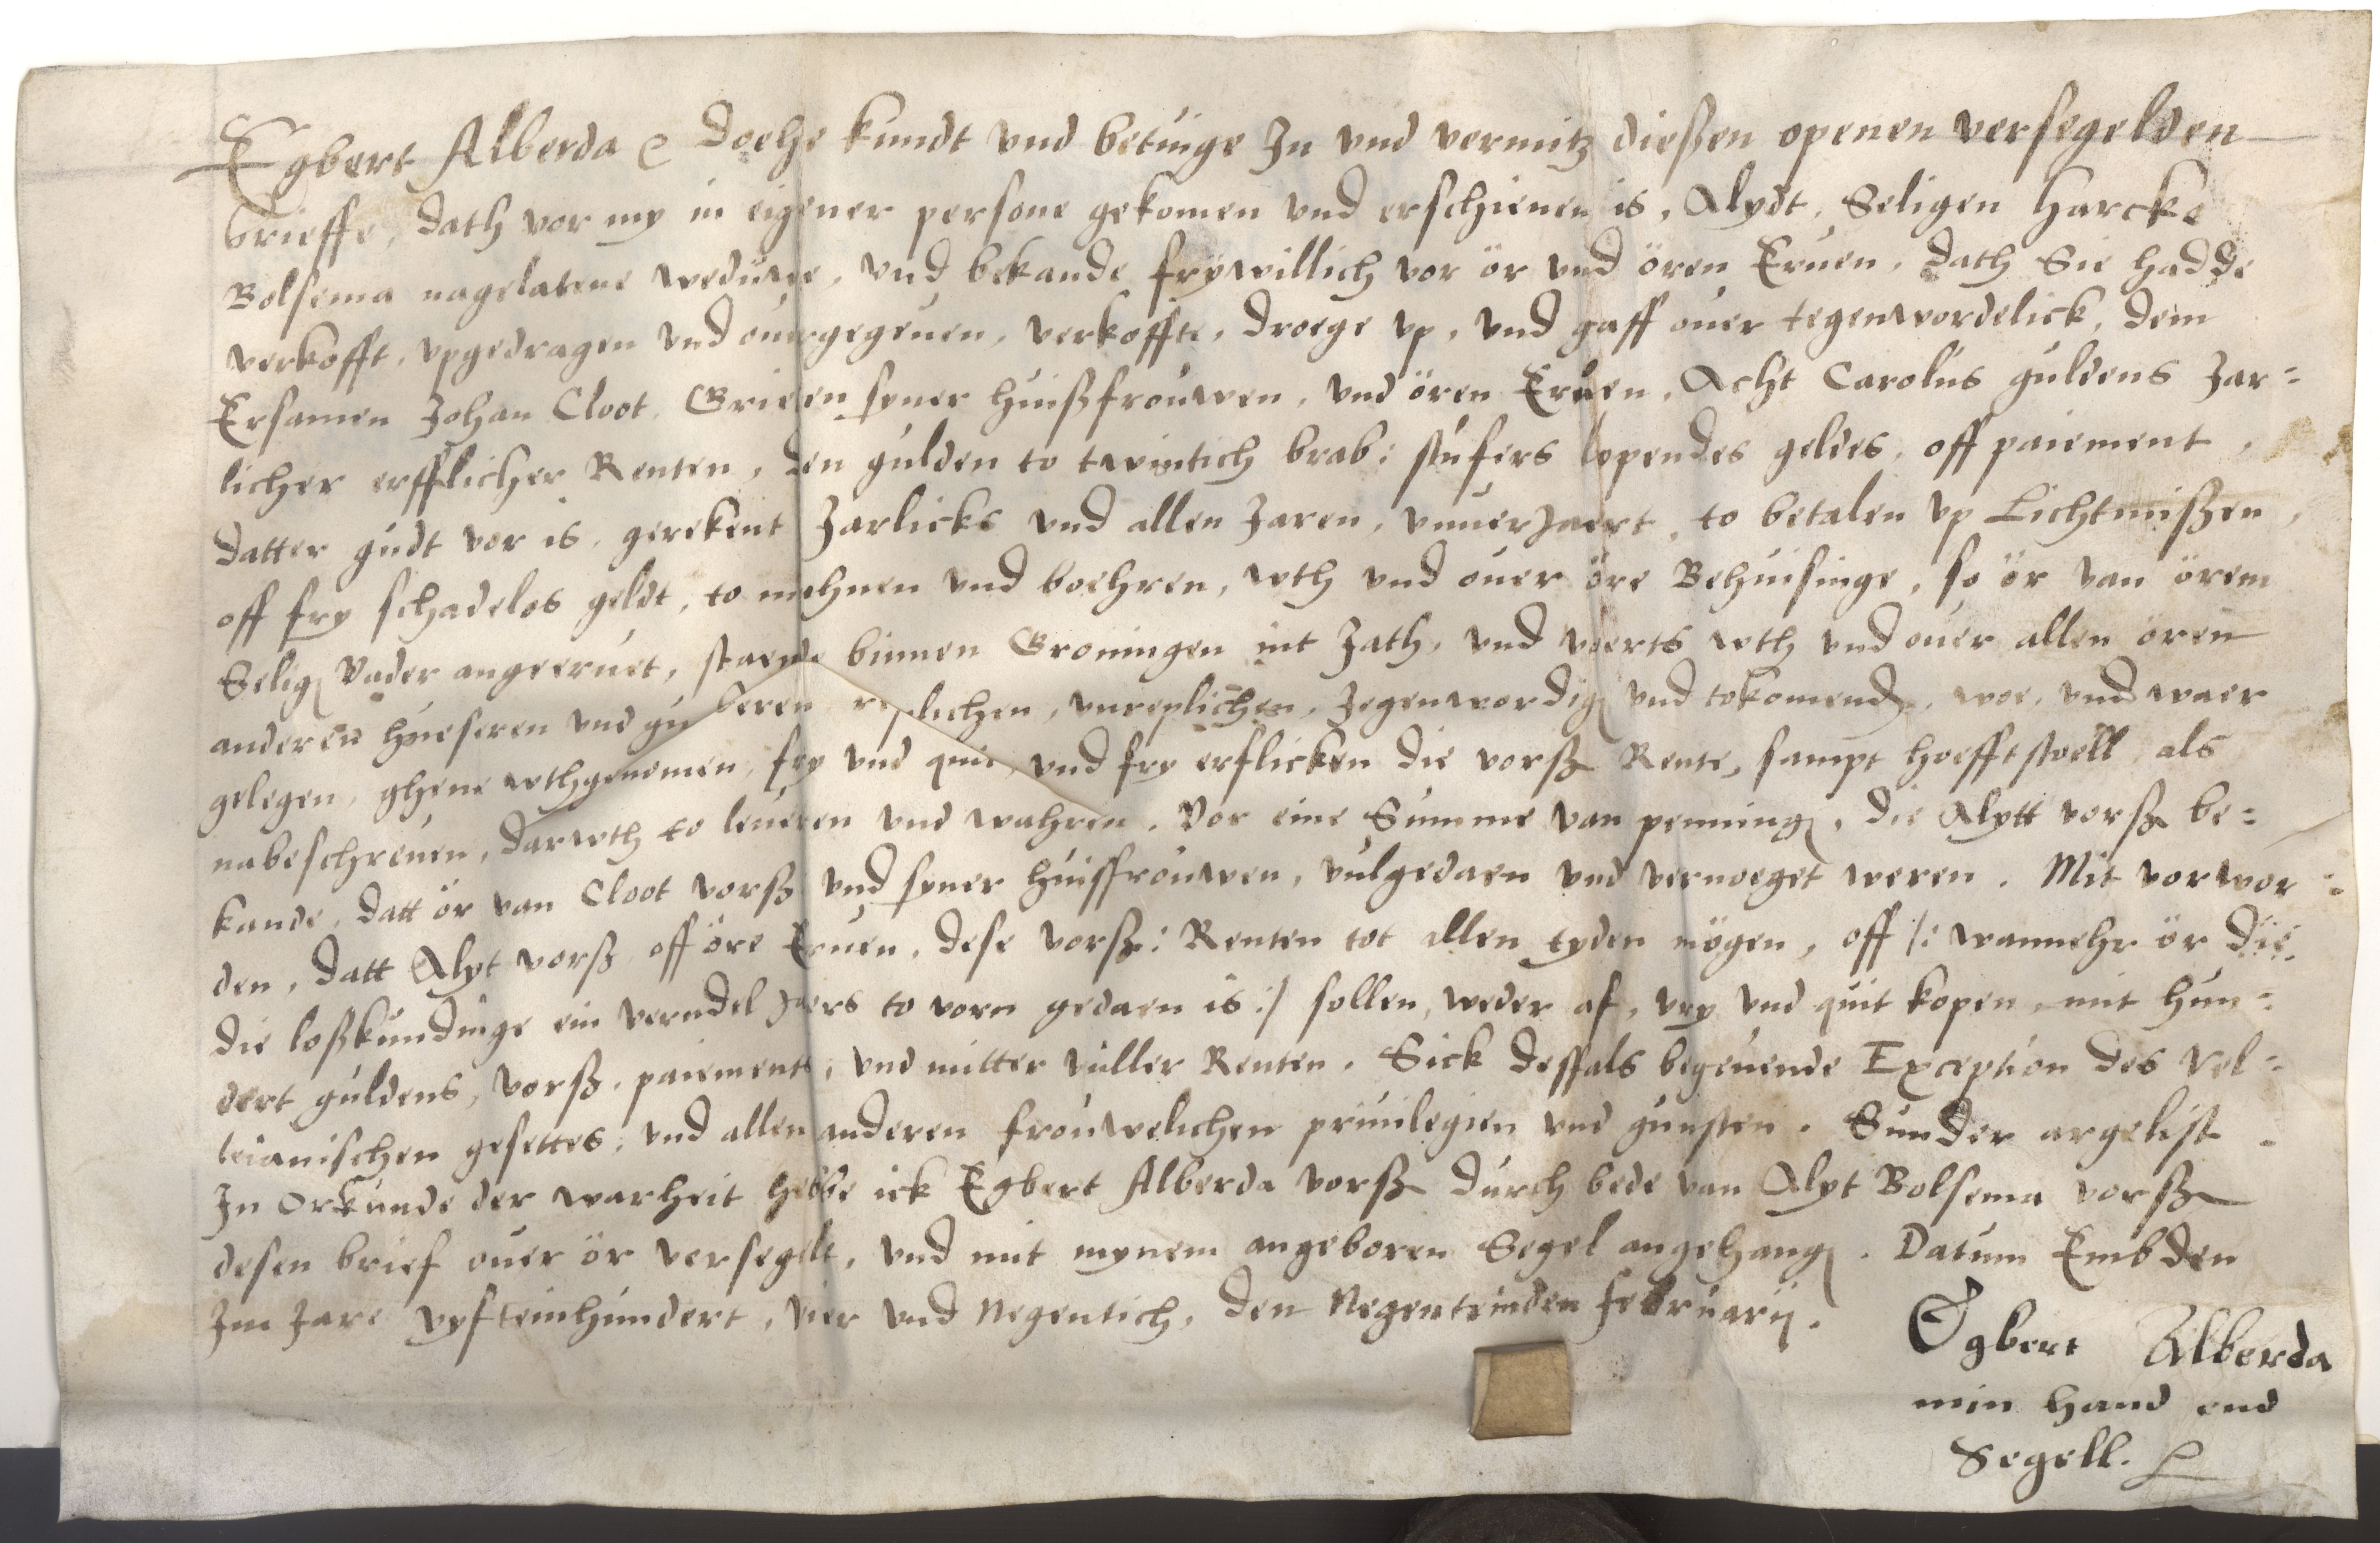 Egbert Alberda ꝛ Doehe kundt vnd betuige In vnd vermitz dießen openen versegelden
brieffe, dath vor my in eigener persone gekomen vnd erschienen is, Alydt, Seligen Harcke
Bolsema nagelatene weduwe, vnd bekande frywillich vor ör vnd ören Eruen, dath Sie hadde
verkofft, vpgedragen vnd ouergegeuen, verkoffte, droege vp, vnd gaff ouer tegenwordelick, dem
Ersamen Johan Cloot, Grieten syner huißfrouwen, vnd ören Eruen, Acht Carolus guldens Jar=
licher erfflicher Renten, den gulden to twintich brab: stufers lopendes geldes, off paiement,
datter gudt vor is, gerekent Jarlicks vnd allen Jaren, vnuerjaert, to betalen vp Lichtmißen,
off fry schadelos geldt, to mehnen vnd boehren, wth vnd ouer öre Behuisinge, so ör van örem
Selig Vader angeeruet, staende binnen Groningen int Jath, vnd voerts wth vnd ouer allen ören
anderen hueseren vnd guderen replichen, vnreplichen, Jegenwordig vnd tokomend, woe, vnd waer
gelegen, ghene wthgenomen, fry vnd quit, vnd fry erflicken die vorß Rente, sampt hoefftstoell als
nabeschreuen, darwth to leueren vnd wahren. Vor eine Summe van penning, die Alytt vorß be=
kande, datt ör van Cloot vorß vnd syner huisfrouwen, vulgedaen vnd vernoeget weren. Mit vorwor=
den, datt Alyt vorß off öre Eruen, dese vorß: Renten tot allen tyden mögen, off /: wannehr ör die
die loßkundinge ein verndel Jaers to vorn gedaen is :/ sollen, weder af, vry vnd quit kopen, mit hun=
dert guldens, vorß. paiements, vnd mitter vuller Renten. Sick desfals begeuende Exception des Vel=
leianischen gesettes, vnd allen anderen frouwelichen priuilegien vnd gunsten. Sunder argelist.
In Orkunde der warheit hebbe ick Egbert Alberda vorß durch bede van Alyt Bolsema vorß
desen brief ouer ör versegelt, vnd mit mynem angeboren Segel angehang. Datum Embden
Im Jare vyfteinhundert, vier vnd Negentich, den Negenteinden februarij.
Egbert Alberda
min hand end
Segell.